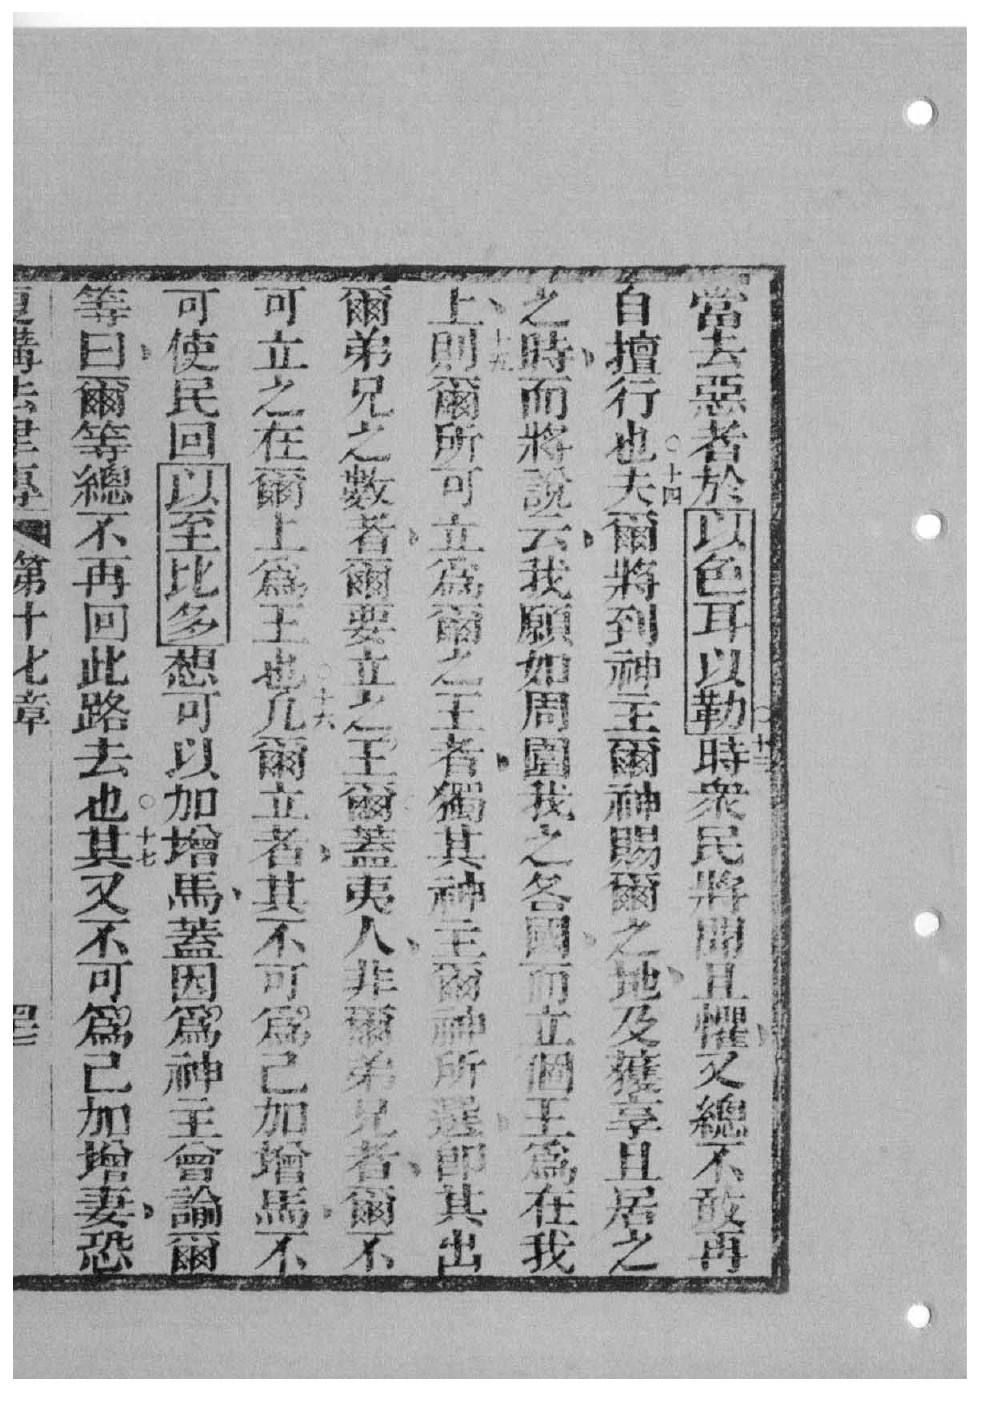 當去惡者於以色耳以勒○十三時衆民將聞且懼又總不敢再
自擅行也○十四夫爾將到神主爾神賜爾之地及獲享且居之
之時而將說云我願如周圍我之各國而立個王爲在我
上○十五則爾所可立爲爾之王者獨其神主爾神所選卽其出
爾弟兄之數者爾要立之王爾蓋夷人非爾弟兄者爾不
可立之在爾上爲王也○十六凡爾立者其不可爲己加增馬不
可使民回以至比多想可以加增馬蓋因爲神主曾諭爾
等曰爾等總不再回此路去也○十七其又不可爲己加增妻恐
復講法律傳 第十七章